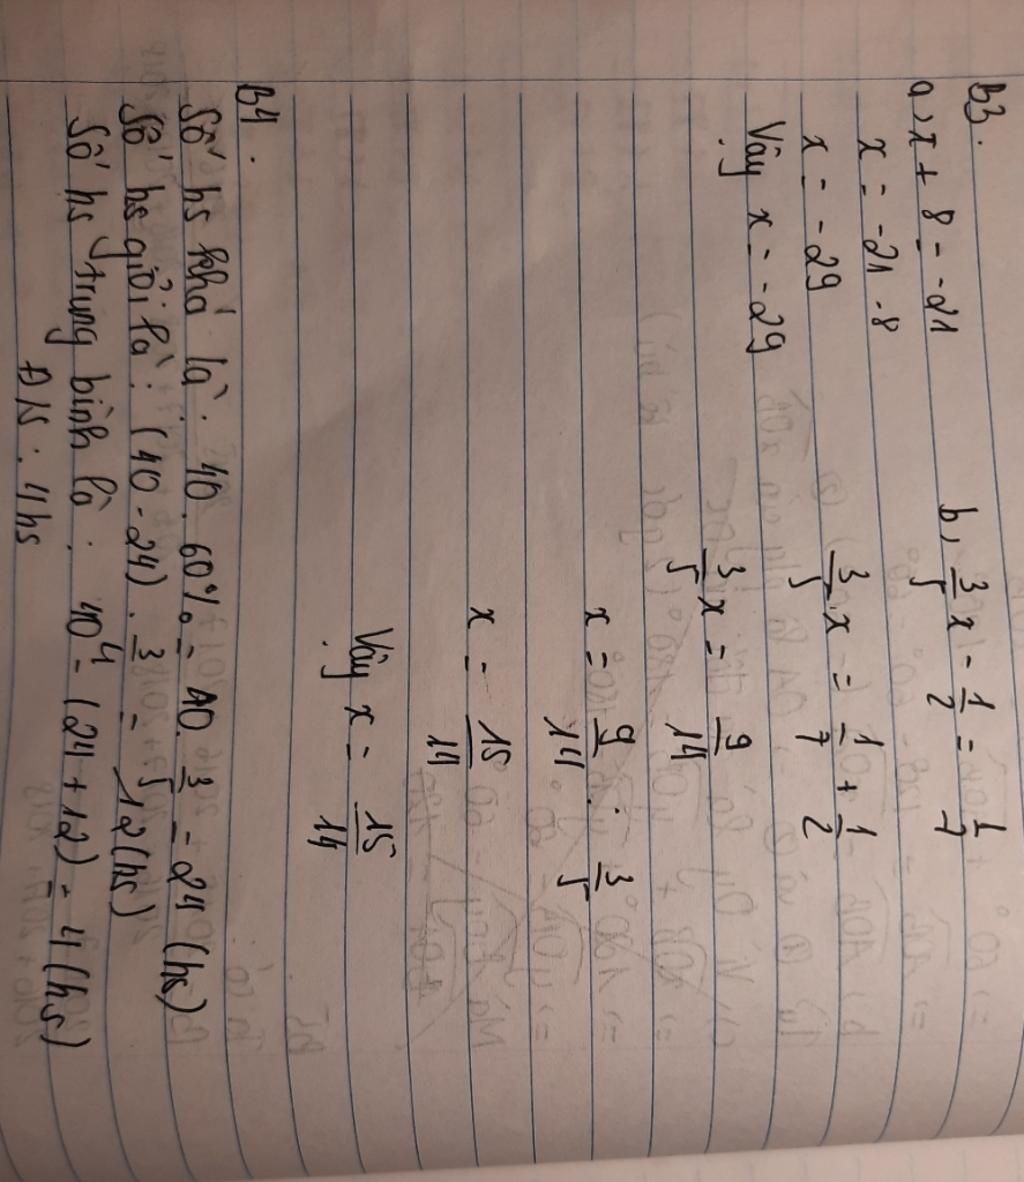 B3.
a, x + 8 = -21
x = -21 - 8
x = -29
Vậy x = -29
b, 3/5 x - 1/2 = 1/7
3/5 x = 1/7 + 1/2
3/5 x = 9/14
x = 9/14 : 3/5
x = 15/14
Vậy x = 15/14
B4.
Số hs khá là: 40. 60% = 40. 3/5 = 24 (hs)
Số hs giỏi là: (40 - 24) . 3/4 = 12 (hs)
Số hs trung bình là: 40 - (24 + 12) = 4 (hs)
Đ/S: 4hs